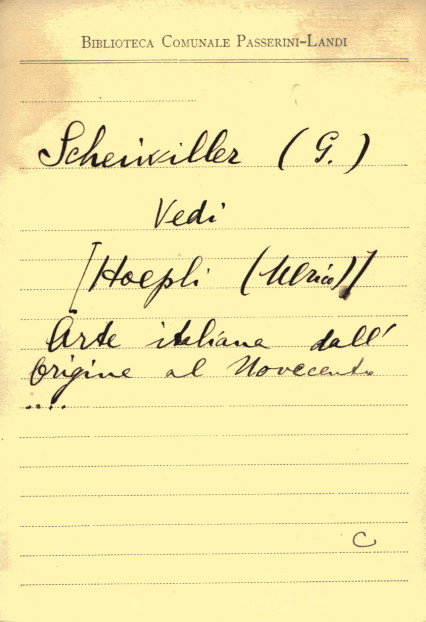 BIBLIOTECA COMUNALE PASSERINI-LANDI
Scheiwiller (G.)
Vedi
[Hoepli (Ulrico)]
Arte italiana dall'
Origine al Novecento
....
C